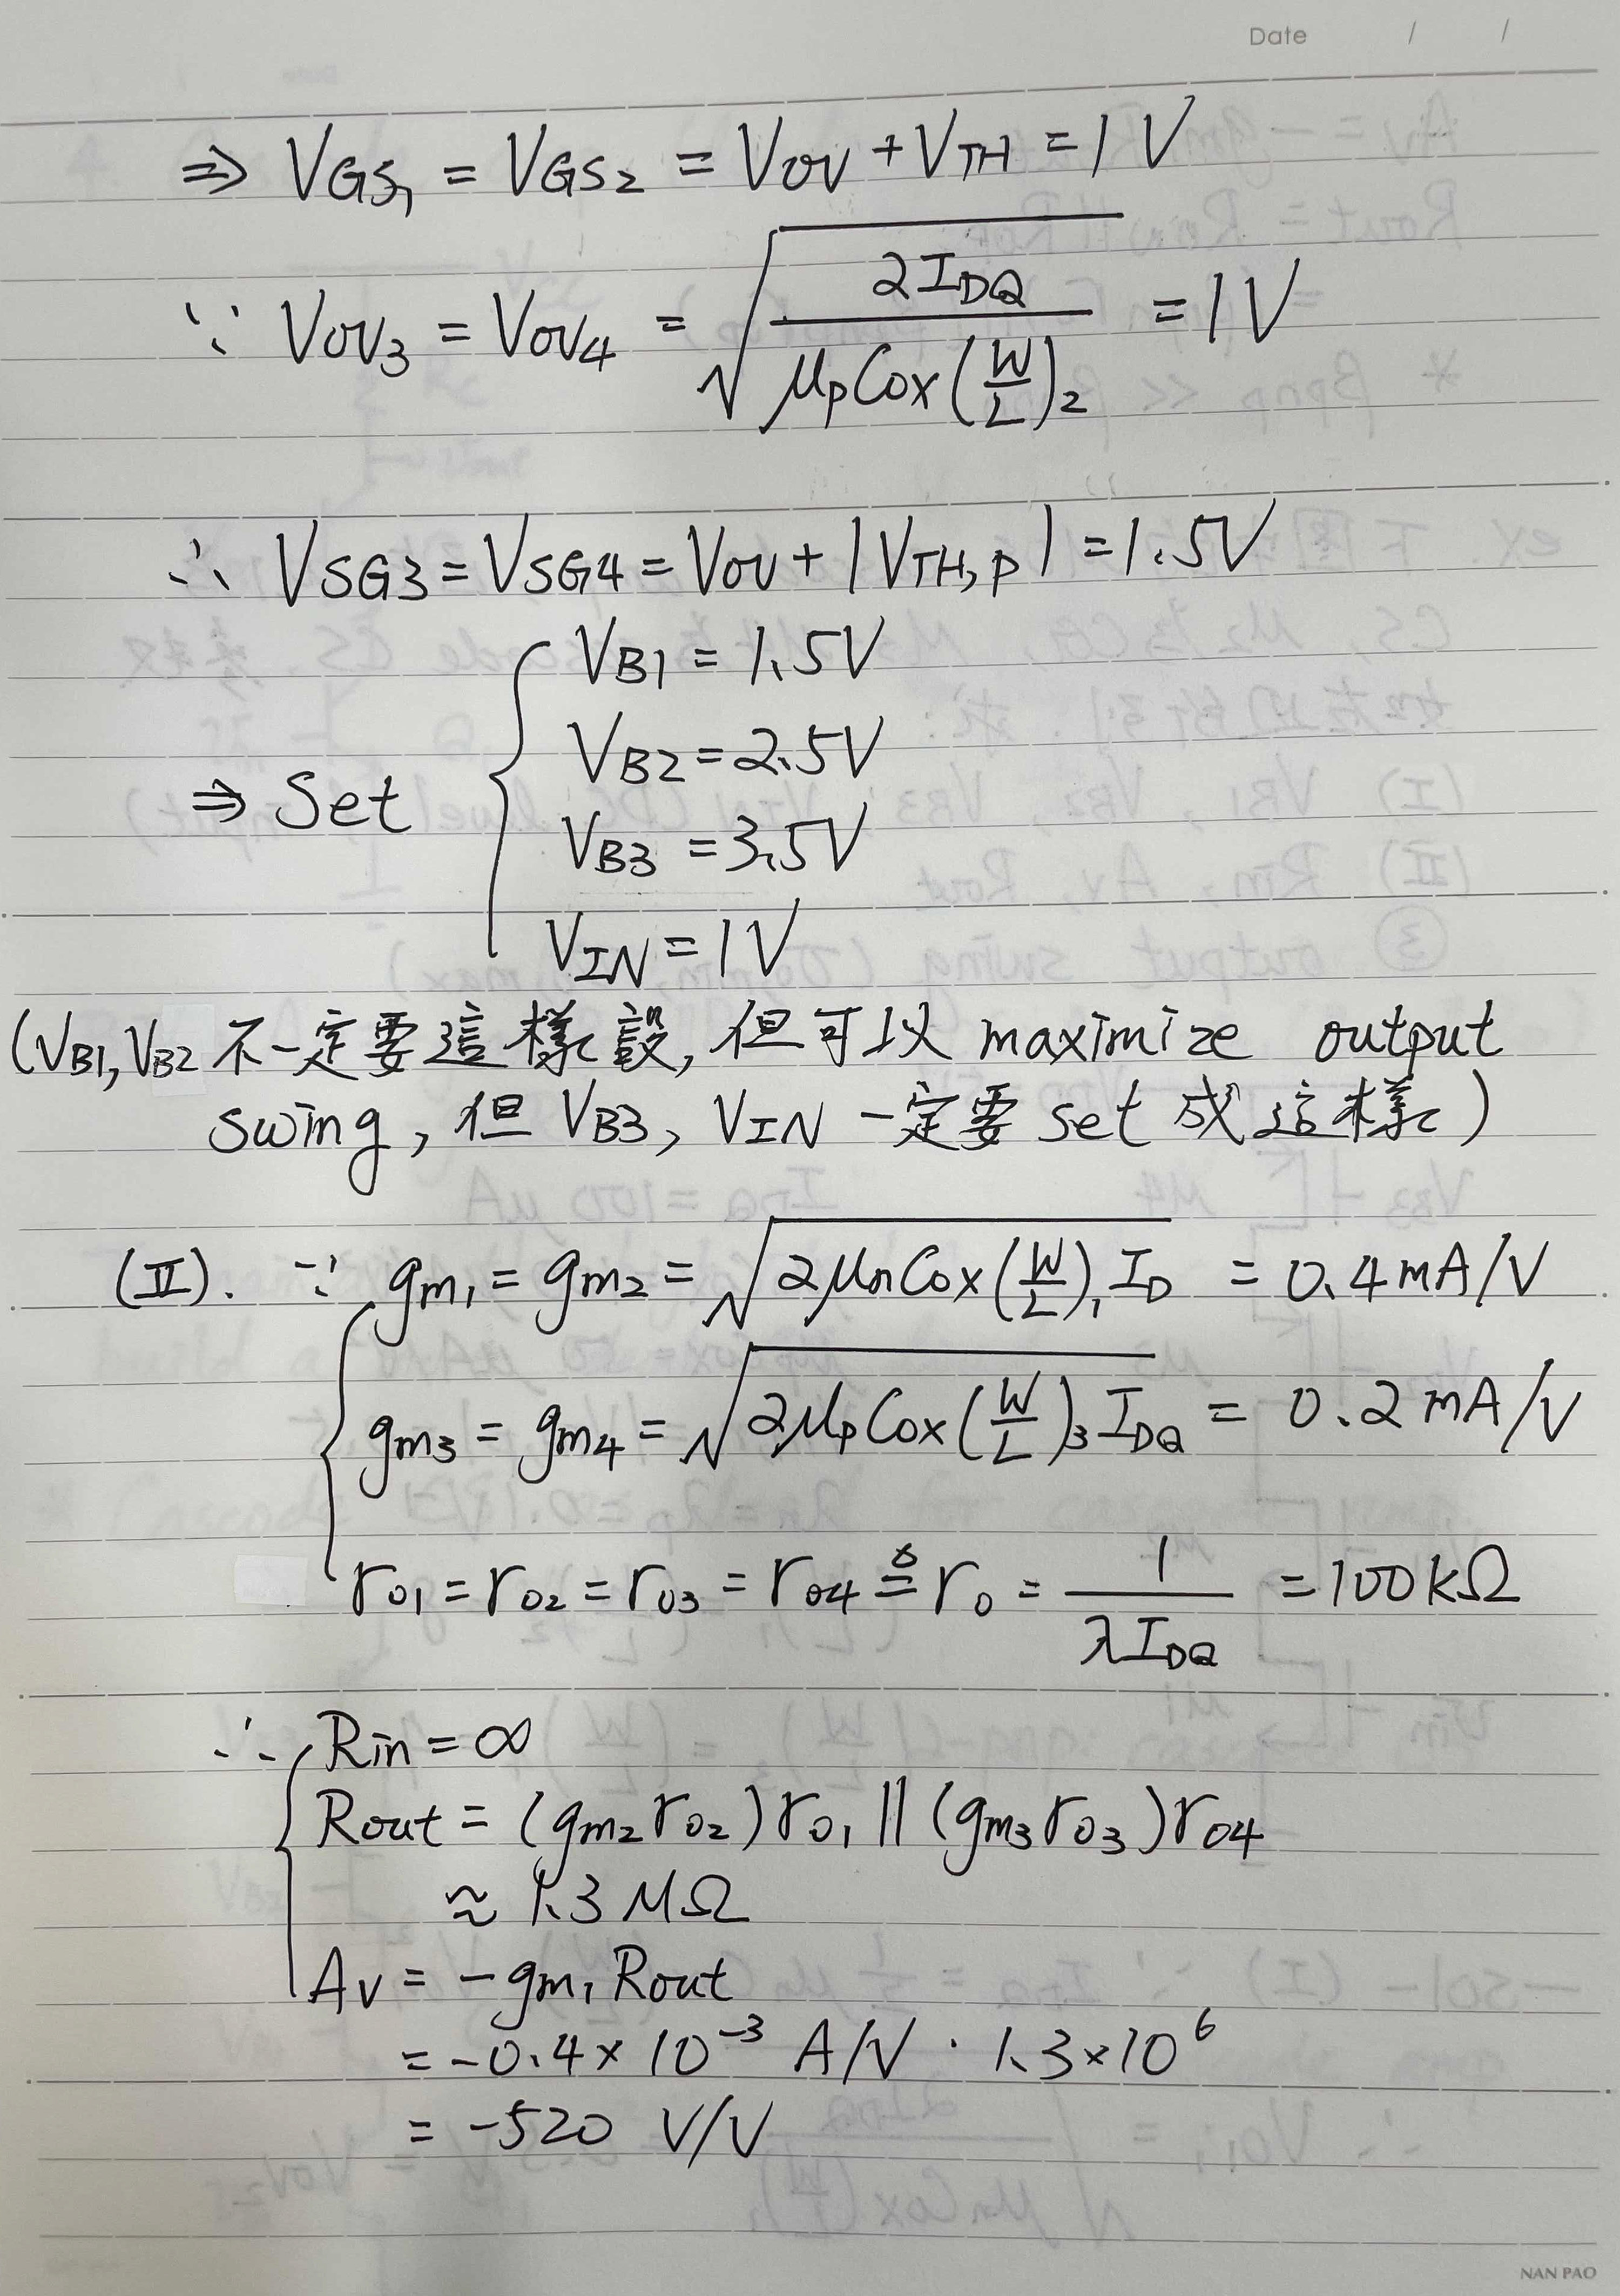 Date / /
⇒ VGS1 = VGS2 = VOV + VTH = 1 V
∵ VOV3 = VOV4 = √(2IDQ / μpCox(W/L)2) = 1V
∴ VSG3 = VSG4 = VOV + |VTH,P| = 1.5V
VB1 = 1.5V
VB2 = 2.5V
⇒ Set
VB3 = 3.5V
VIN = 1V
(VB1, VB2 不一定要這樣設, 但可以 maximize output
swing, 但 VB3, VIN 一定要 set 成這樣)
(II). ∵ gm1 = gm2 = √(2μnCox(W/L)1 ID) = 0.4mA/V
gm3 = gm4 = √(2μpCox(W/L)3 IDQ) = 0.2mA/V
ro1 = ro2 = ro3 = ro4 ≜ ro = 1 / λIDQ = 100kΩ
∴ Rin = ∞
Rout = (gm2ro2)ro1 || (gm3ro3)ro4
≈ 1.3 MΩ
Av = -gm1 Rout
= -0.4×10⁻³ A/V · 1.3×10⁶
= -520 V/V
NAN PAO